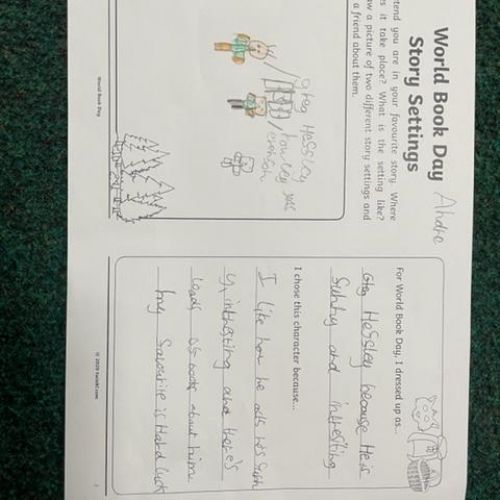 World Book Day
Andre
Story Settings
tend you are in your favourite story. Where
es it take place? What is the setting like?
aw a picture of two different story settings and
a friend about them.
Greg Hessley
World Book Day
For World Book Day, I dressed up as...
Greg Hessley because He is
Sunny and intresting
I chose this character because...
I like how he acts hes Sunn
y, intresting and there's
loads of books about him
my favourite is Hard luck